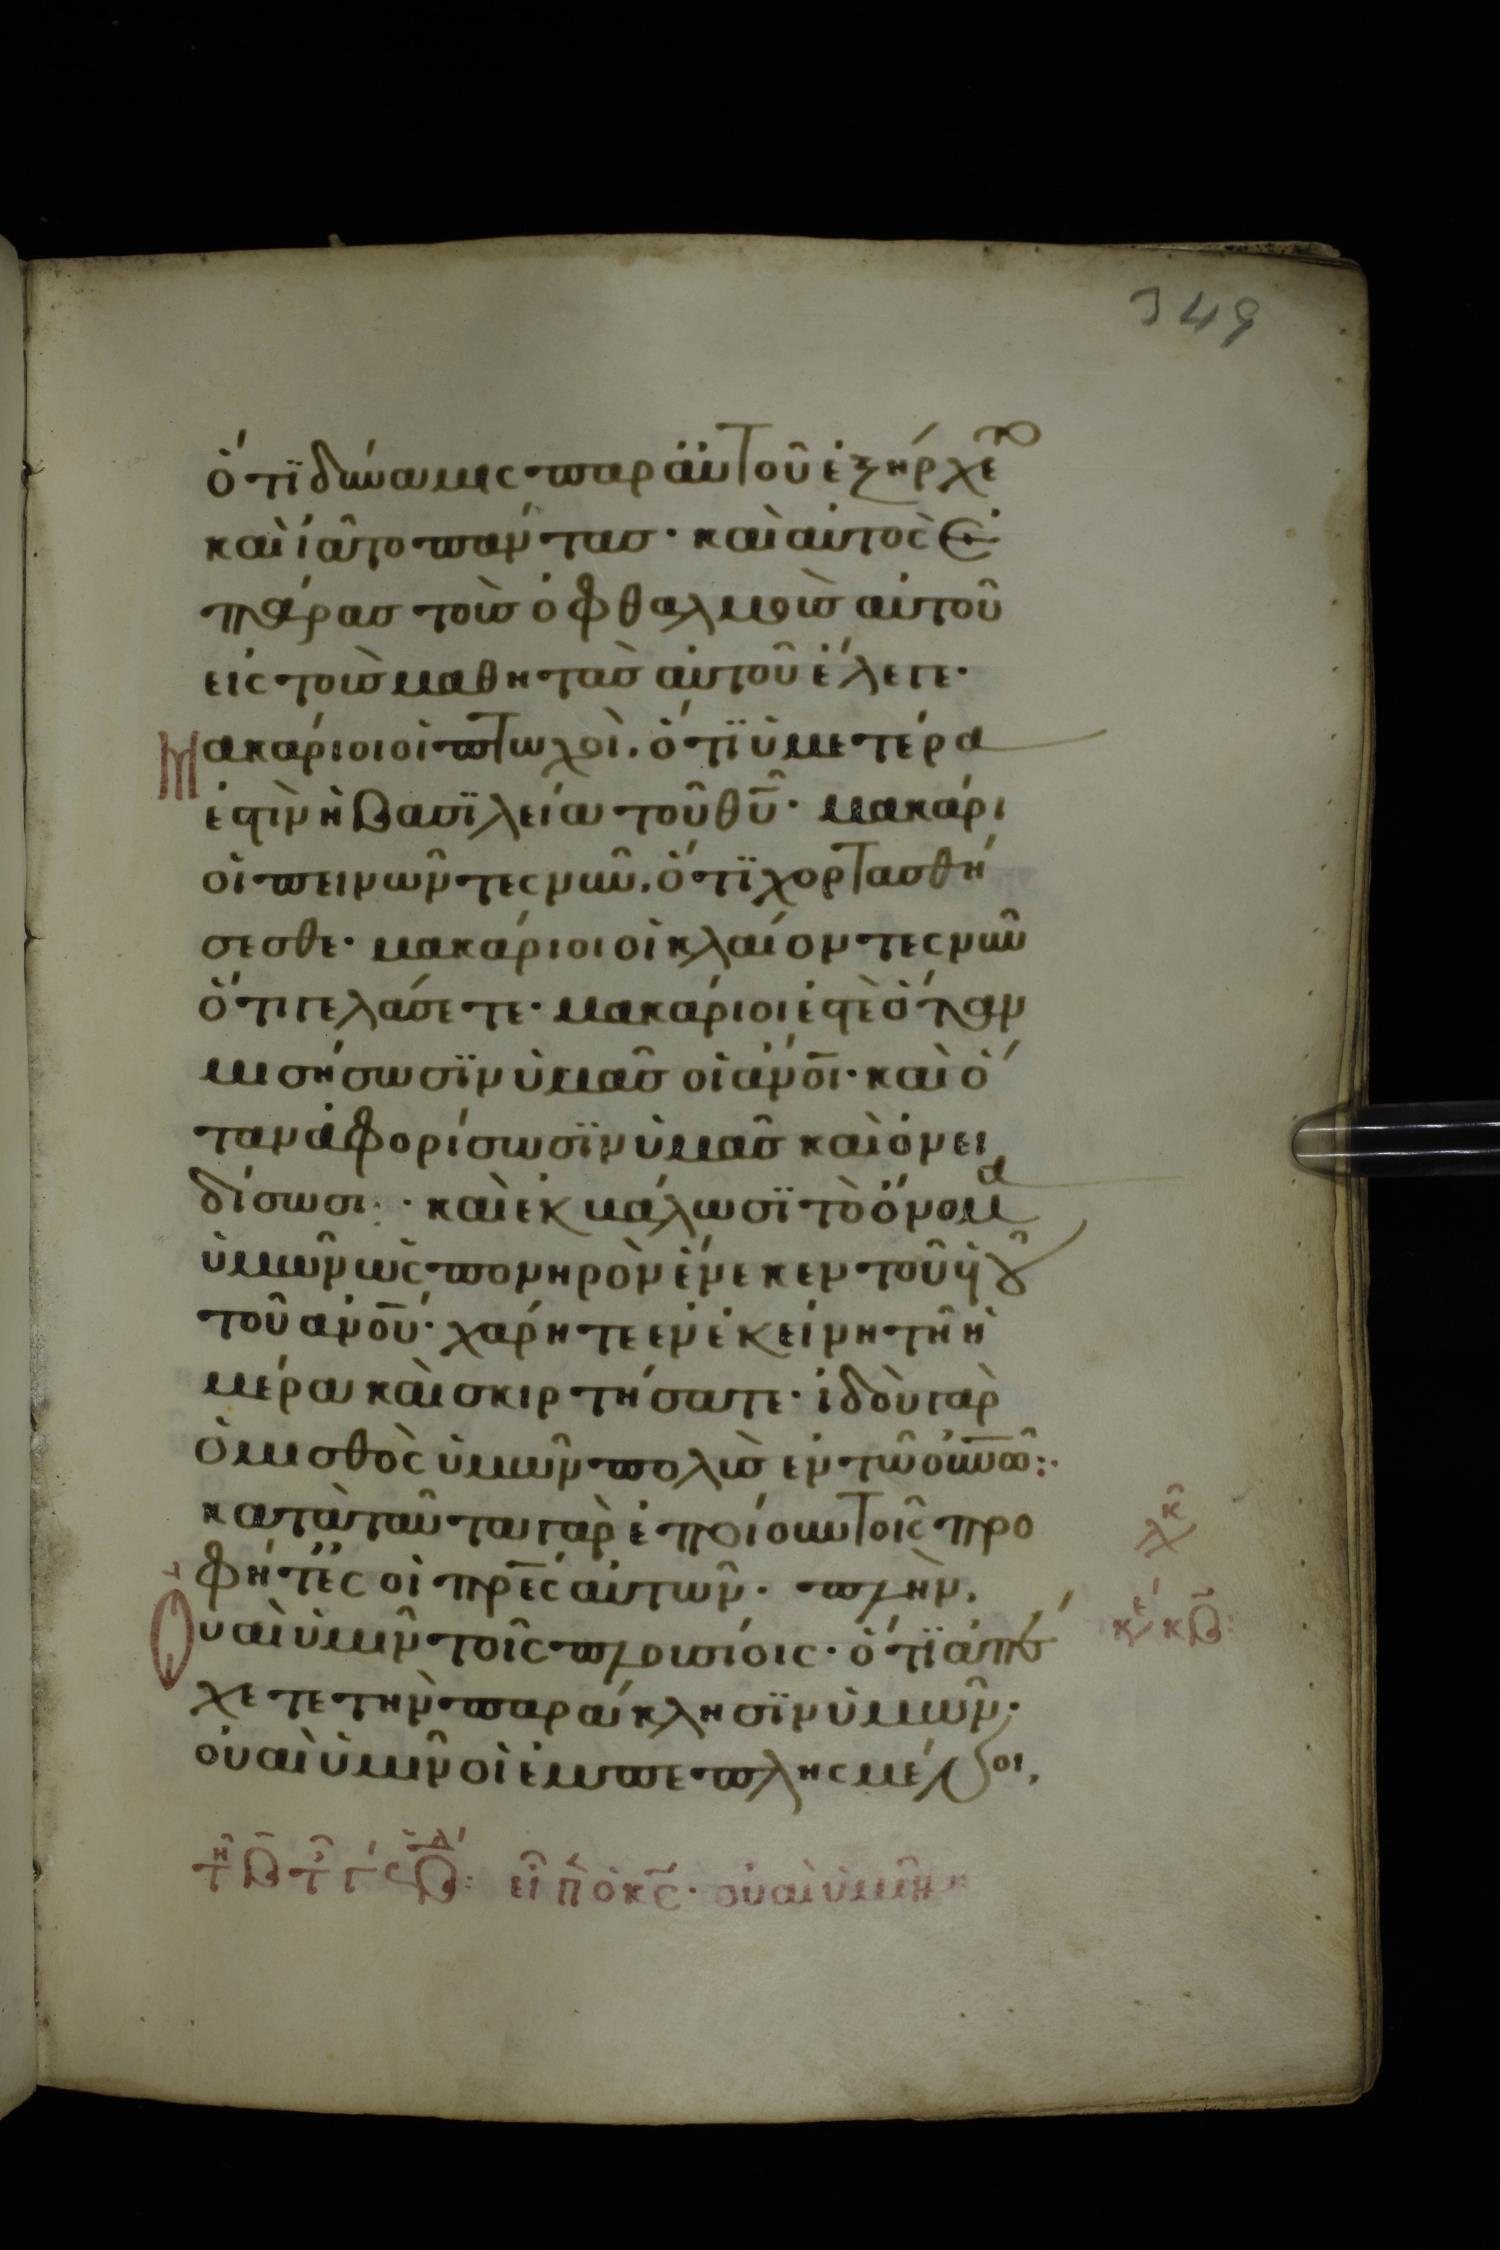 349
ὅτϊ δύναμις παρ αὐτοῦ ἐξήρχετο
καὶ ἰᾶτο πάντασ· καὶ αὐτὸς ἐ
πάρασ τοὺσ ὀφθαλμοὺσ αὐτοῦ
εἰς τοὺσ μαθητὰσ αὐτοῦ ἔλεγε·
Μακάριοι οἱ πτωχοὶ. ὅτϊ ὑμετέρα
ἐστὶν ἡ βασϊλεία τοῦ θῦ· μακάρι
οἱ πεινῶντες νῦν. ὅτϊ χορτασθή
σεσθε· μακάριοι οἱ κλαίοντες νῦν
ὅτι γελάσετε· μακάριοι ἐστὲ ὅταν
μισήσωσϊν ὑμᾶσ οἱ ἄνοι· καὶ ὅ
ταν ἀφορίσωσϊν ὑμᾶσ καὶ ὀνει
δίσωσι· καὶ ἐκβάλωσϊ τὸ ὄνομα
ὑμῶν ὡς πονηρὸν ἕνεκεν τοῦ ὑῦ
τοῦ ἀνου· χάρητε ἐν ἐκείνη τῆ ἡ
μέρα καὶ σκιρτήσατε· ἰδοὺ γὰρ
ὁ μισθὸς ὑμῶν πολὺσ ἐν τῶ οὐνῶ:·
κατὰ ταῦτα γὰρ ἐποίουν τοῖς προ
φήταις οἱ πρες αὐτῶν· πλὴν.
Οὐαὶ ὑμῖν τοῖς πλουσίοις· ὅτϊ ἀπέ
χετε τὴν παράκλησϊν ὑμῶν·
οὐαὶ ὑμῖν οἱ ἐμπεπλησμένοι.
εἶπ ὁ κς· οὐαὶ ὑμῖν